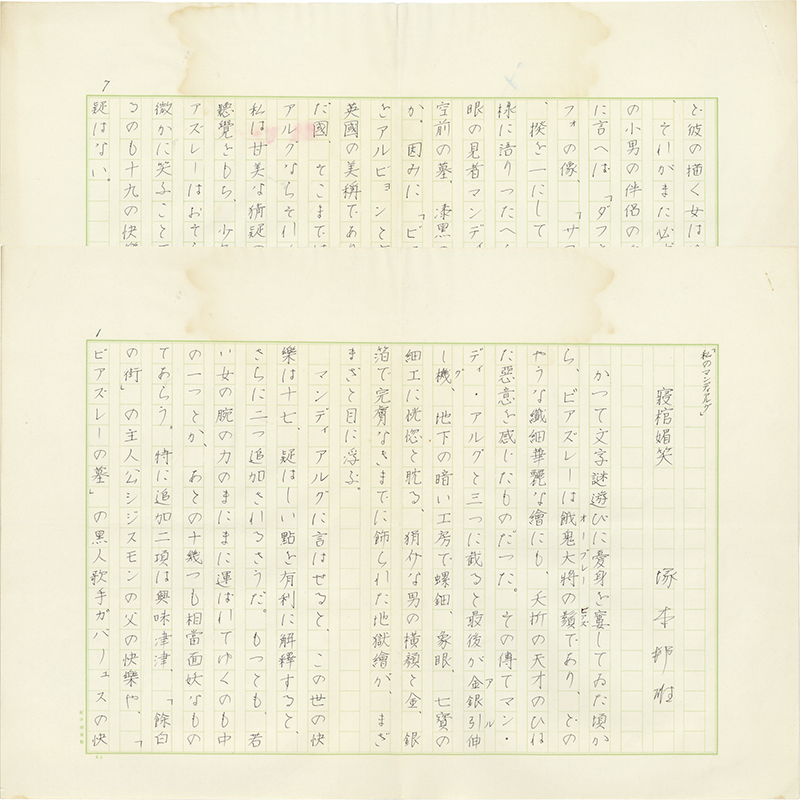 7
ど彼の描く女は
、それがまた必ず
の小男の伴侶の
に言へば「ダフ
フォの像、「サフ
、揆を一にして
様に語りつたへ
眼の見者マンディ
空前の墓、漆黒の
か。因みに「ビ
をアルビョンと
英國の美稱であり
だ國、そこまでは
アルグならそれ
私は甘美な猜疑
聽覺をもち、少
アズレーはおそら
微かに笑ふこと
るのも十九の快樂
疑はない。
1
「私のマンディアルグ」
寝棺媚笑
塚本邦雄
かつて文字謎遊びに憂身を窶してゐた頃か
ら、ビアズレーは餓鬼大將の鬚であり、どの
オーブレー ビアズ
やうな纖細華麗な繪にも、夭折の天才のひね
た惡意を感じたものだった。その傳でマン・
ディ・アルグと三つに截ると最後が金銀引伸
アル
し機、地下の暗い工房で螺鈿、象眼、七寶の
グ
細工に恍惚と耽る、猾介な男の橫顏と金、銀
箔で完膚なきまでに飾られた地獄繪が、まざ
まざと目に浮ぶ。
マンディアルグに言はせると、この世の快
樂は十七、疑はしい點を有利に解釋すると、
さらに二つ追加されるさうだ。もつとも、若
い女の腕の力のまにまに運ばれてゆくのも中
の一つとか、あとの十幾つも相當面妖なもの
であらう。特に追加二項は興味津津、「餘白
の街」の主人公シジスモンの父の快樂や、「
ビアズレーの墓」の黑人歌手ガバリュスの快